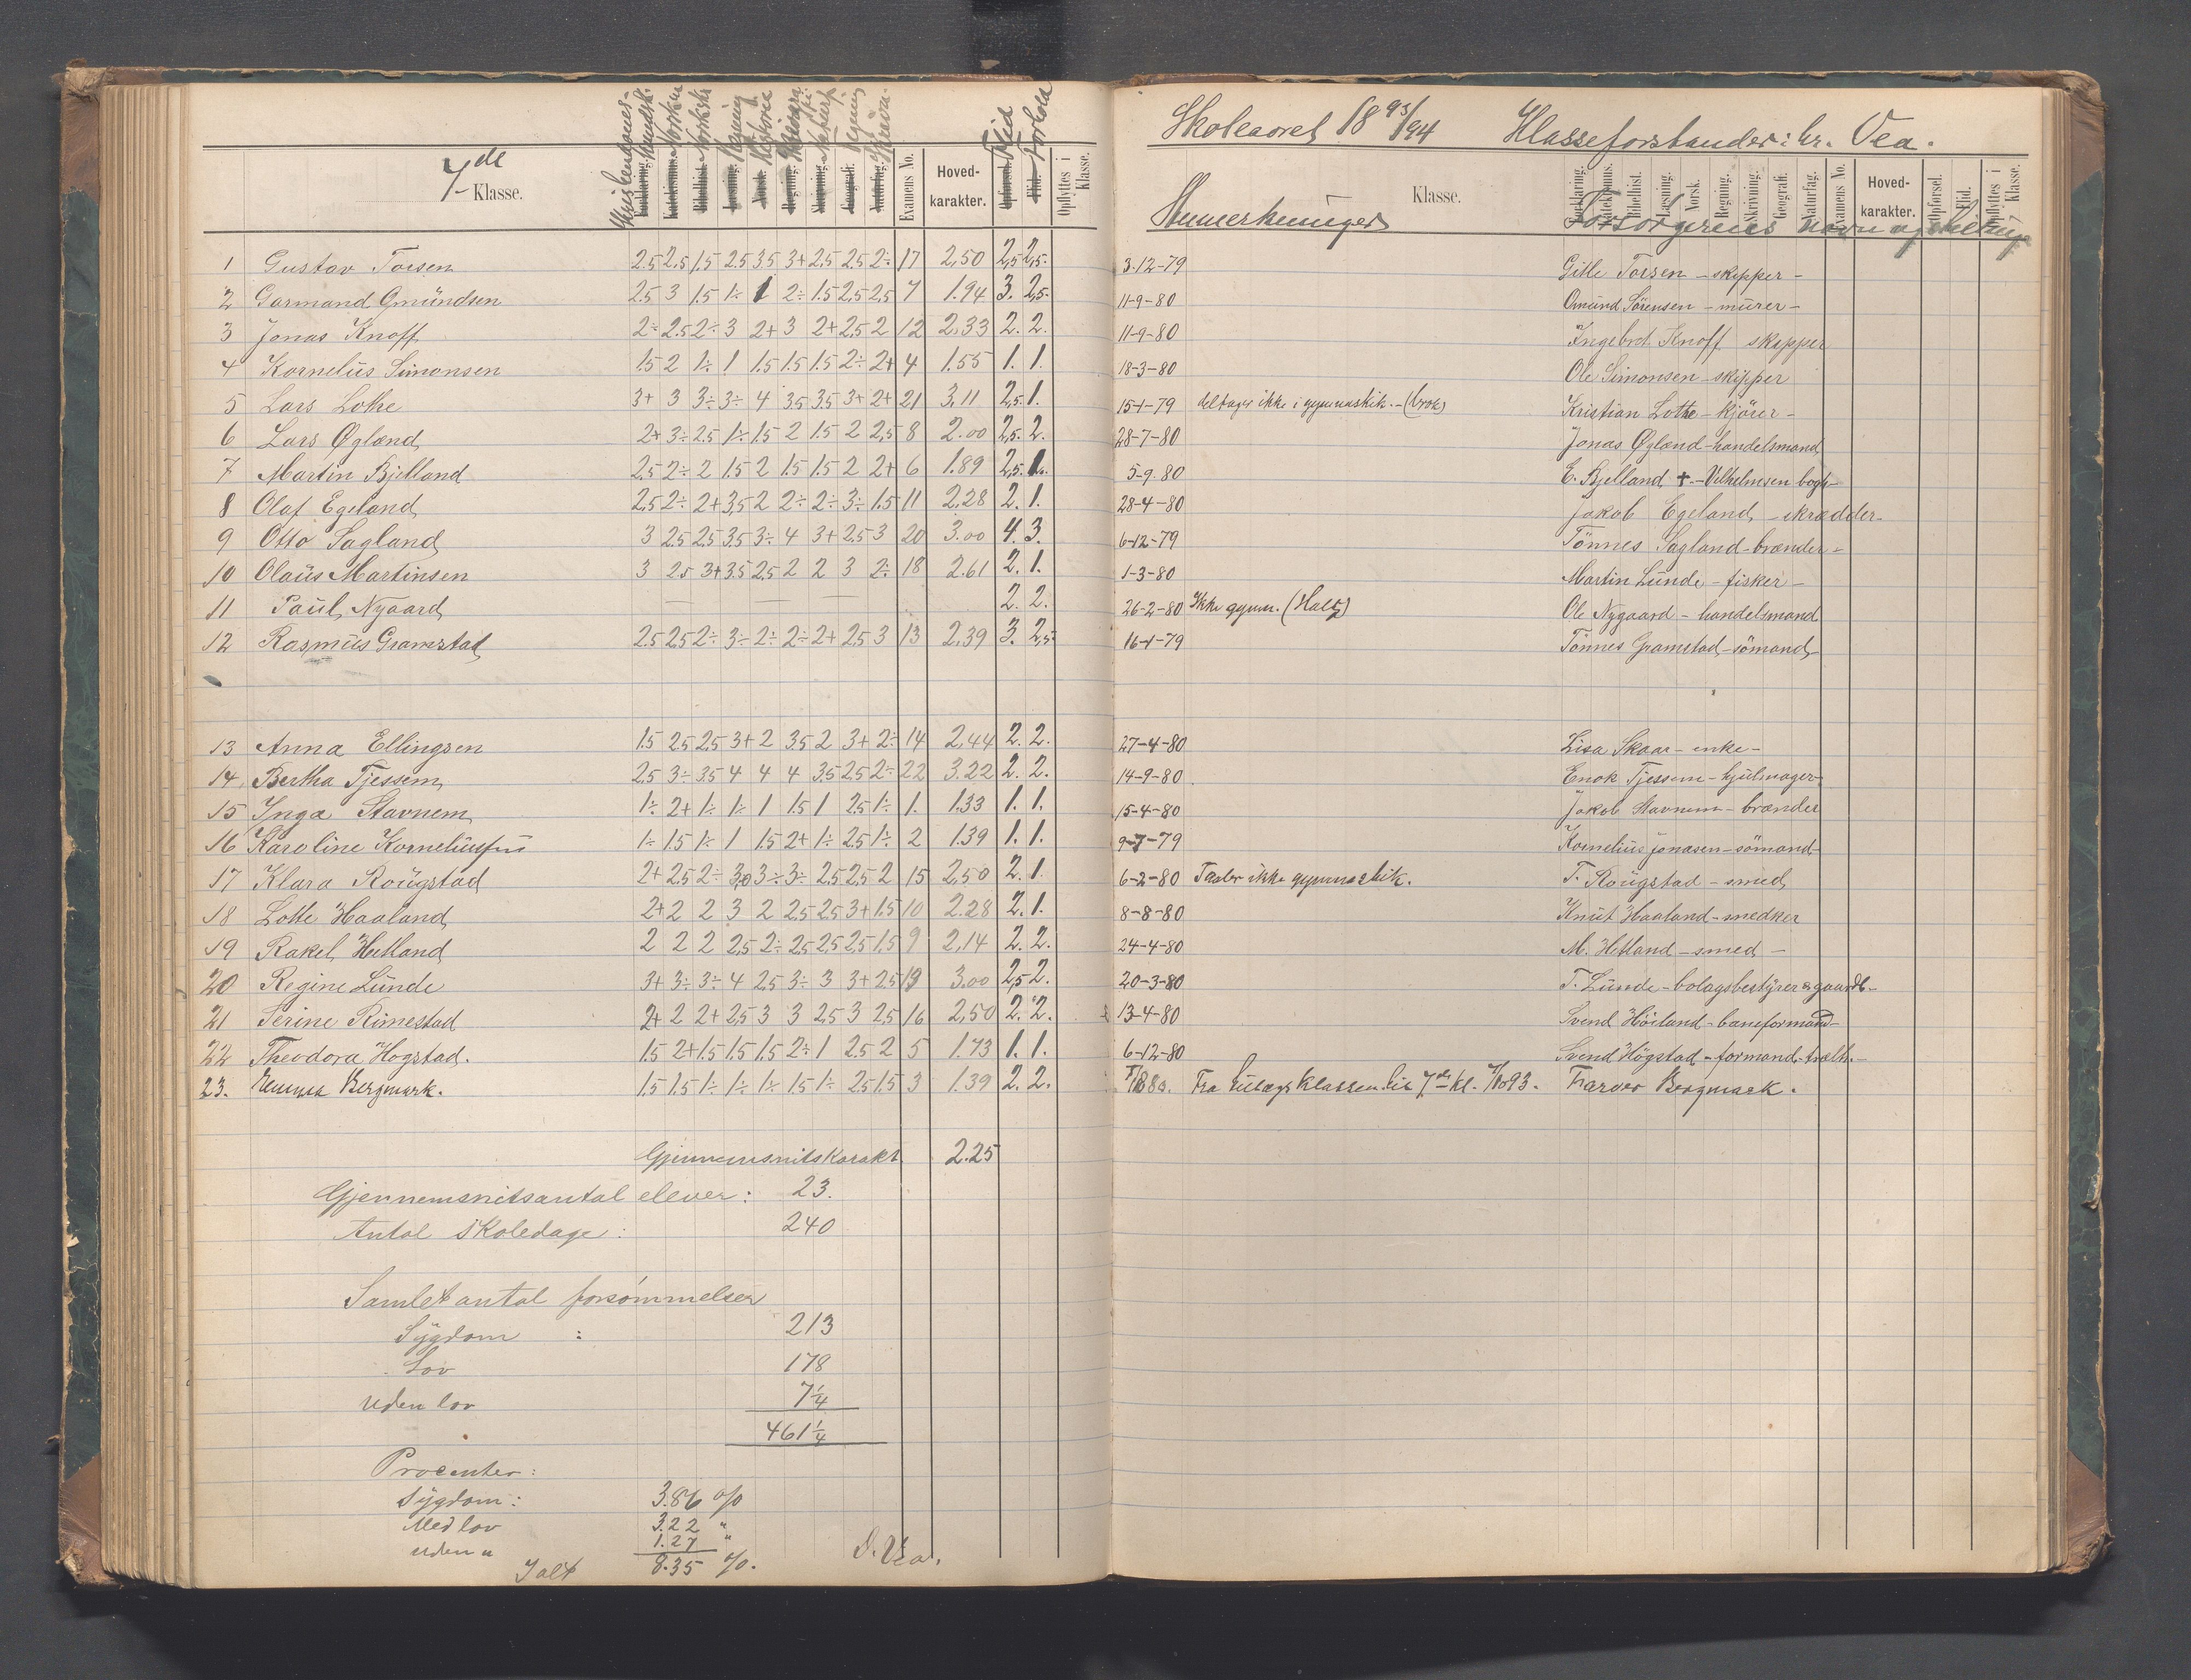 Kristendoms-
kundsk. Norsk sk. Norsk m. Regning Historie Geogra- fi. Naturf. Tegning Skrivn.
Flid Forhold
7de Klasse.
Forklaring. Katekismus. Bibelhist. Læsning. Norsk. Regning. Skrivning. Geografi. Naturfag. Examens No. Hoved-karakter. Opførsel. Flid. Opflyttes i Klasse.
1 Gustav Torsen 2.5 2.5 1.5 2.5 3.5 3+ 2.5 2.5 2÷ 17 2,50 2,5 2,5.
2 Garmand Omündsen 2.5 3 1.5 1÷ 1 2÷ 1.5 2.5 2,5 7 1.94 3. 2,5.
3 Jonas Knoff 2÷ 2.5 2÷ 3 2+ 3 2+ 2,5 2 12 2,33 2. 2.
4 Kornelius Simonsen 1.5 2 1÷ 1 1.5 1.5 1.5 2÷ 2+ 4 1.55 1. 1.
5 Lars Lothe 3+ 3 3÷ 3÷ 4 3.5 3.5 3+ 2+ 21 3,11 2,5. 1.
6 Lars Øglænd 2+ 3÷ 2.5 1÷ 1.5 2 1.5 2 2,5 8 2.00 2,5. 2.
7 Martin Bjelland 2,5 2÷ 2 1.5 2 1.5 1.5 2 2+ 6 1.89 2,5. 1.
8 Olaf Egeland 2,5 2÷ 2+ 3,5 2 2÷ 2÷ 3÷ 1.5 11 2,28 2. 1.
9 Otto Sagland 3 2.5 2,5 3.5 3÷ 4 3+ 2.5 3 20 3.00 4. 3.
10 Olaüs Martinsen 3 2.5 3+ 3.5 2,5 2 2 3 2÷ 18 2.61 2. 1.
11 Paül Nygaard — — — 2. 2.
12 Rasmüs Gramstad 2.5 2.5 2÷ 3÷ 2÷ 2÷ 2+ 2.5 3 13 2,39 3. 2,5.
13 Anna Ellingsen 1.5 2.5 2,5 3+ 2 3.5 2 3+ 2÷ 14 2,44 2. 2.
14 Bertha Tjessem 2,5 3÷ 3.5 4 4 4 3.5 2.5 2÷ 22 3.22 2. 2.
15 Inga Stavnem 1÷ 2+ 1÷ 1÷ 1 1.5 1 2.5 1÷ 1. 1.33 1. 1.
16 Karoline Korneliussen 1÷ 1.5 1÷ 1 1.5 2+ 1÷ 2.5 1÷ 2 1.39 1. 1.
17 Klara Roügstad 2+ 2.5 2÷ 3,0 3÷ 3÷ 2.5 2,5 2 15 2,50 2. 1.
18 Lotte Haaland 2+ 2 2 3 2 2.5 2.5 3+ 1.5 10 2.28 2. 1.
19 Rakel Hetland 2 2 2 2,5 2÷ 2.5 2.5 2.5 1.5 9 2,14 2. 2.
20 Regine Lünde 3+ 3÷ 3÷ 4 2.5 3÷ 3 3+ 2.5 19 3.00 2,5 2.
21 Serine Rimestad 2+ 2 2+ 2,5 3 3 2.5 3 2,5 16 2,50 2. 2.
22 Theodora Høgstad. 1.5 2+ 1.5 1.5 1.5 2÷ 1 2.5 2 5 1.73 1. 1.
23. Bergmark. 1.5 1.5 1÷ 1÷ 1÷ 1.5 1÷ 2.5 1.5 3 1.39 2. 2.
Gjennemsnitskarakt. 2.25
Gjennemsnitsantal elever: 23.
Antal skoledage: 240
Samlet antal forsømmelser
Sÿgdom : 213
Lov 178
Uden lov 7¼
461¼
Procenter:
Sÿgdom: 3.86 %
Med lov 3.22 "
uden " 1.27 "
Ialt 8.35 %.
S. Vea.
Skoleaaret 18 93/94 Klasseforstander: hr. Vea.
Anmerkninger Klasse. Forsørgerens navn og stilling
Forklaring. Katekismus. Bibelhist. Læsning. Norsk. Regning. Skrivning. Geografi. Naturfag. Examens No. Hoved-karakter. Opførsel. Flid. Opflyttes i Klasse.
3-12-79 Gitle Torsen - skipper -
11-9-80 Omünd Sörensen - mürer -
11-9-80 Ingebrt. Knoff skipper
18-3-80 Ole Simonsen - skipper
15-1-79 deltager ikke i gymnastik. - (brok) Kristian Lothe - kjörer -
28-7-80 Jonas Øglænd - handelsmand
5-9-80 E. Bjelland † - Vilhelmsen bogh-
28-4-80 Jakob Egeland - skrædder-
6-12-79 Tönnes Sagland - brænder -
1-3-80 Martin Lünde - fisker -
26-2-80 Ikke gymn. (Halt) Ole Nygaard - handelsmand
16-1-79 Tönnes Gramstad - sömand -
27-4-80 Lisa Skaar - enke -
14-9-80 Enok Tjessem - hjulmager
15-4-80 Jakob Stavnem - brænder
9-7-79 Kornelius Jonasen - sömand -
6-2-80 Taaler ikke gymnastik. T. Roügstad - smed
8-8-80 Knüt Haaland - snedker
24-4-80 M. Hetland - smed -
20-3-80 T. Lünde - bolagsbestyrer
13-4-80 Svend Höiland - baneformand -
6-12-80 Svend Högstad - formand
80. Fra klassen til 7de kl. 93. Farver Bergmark.